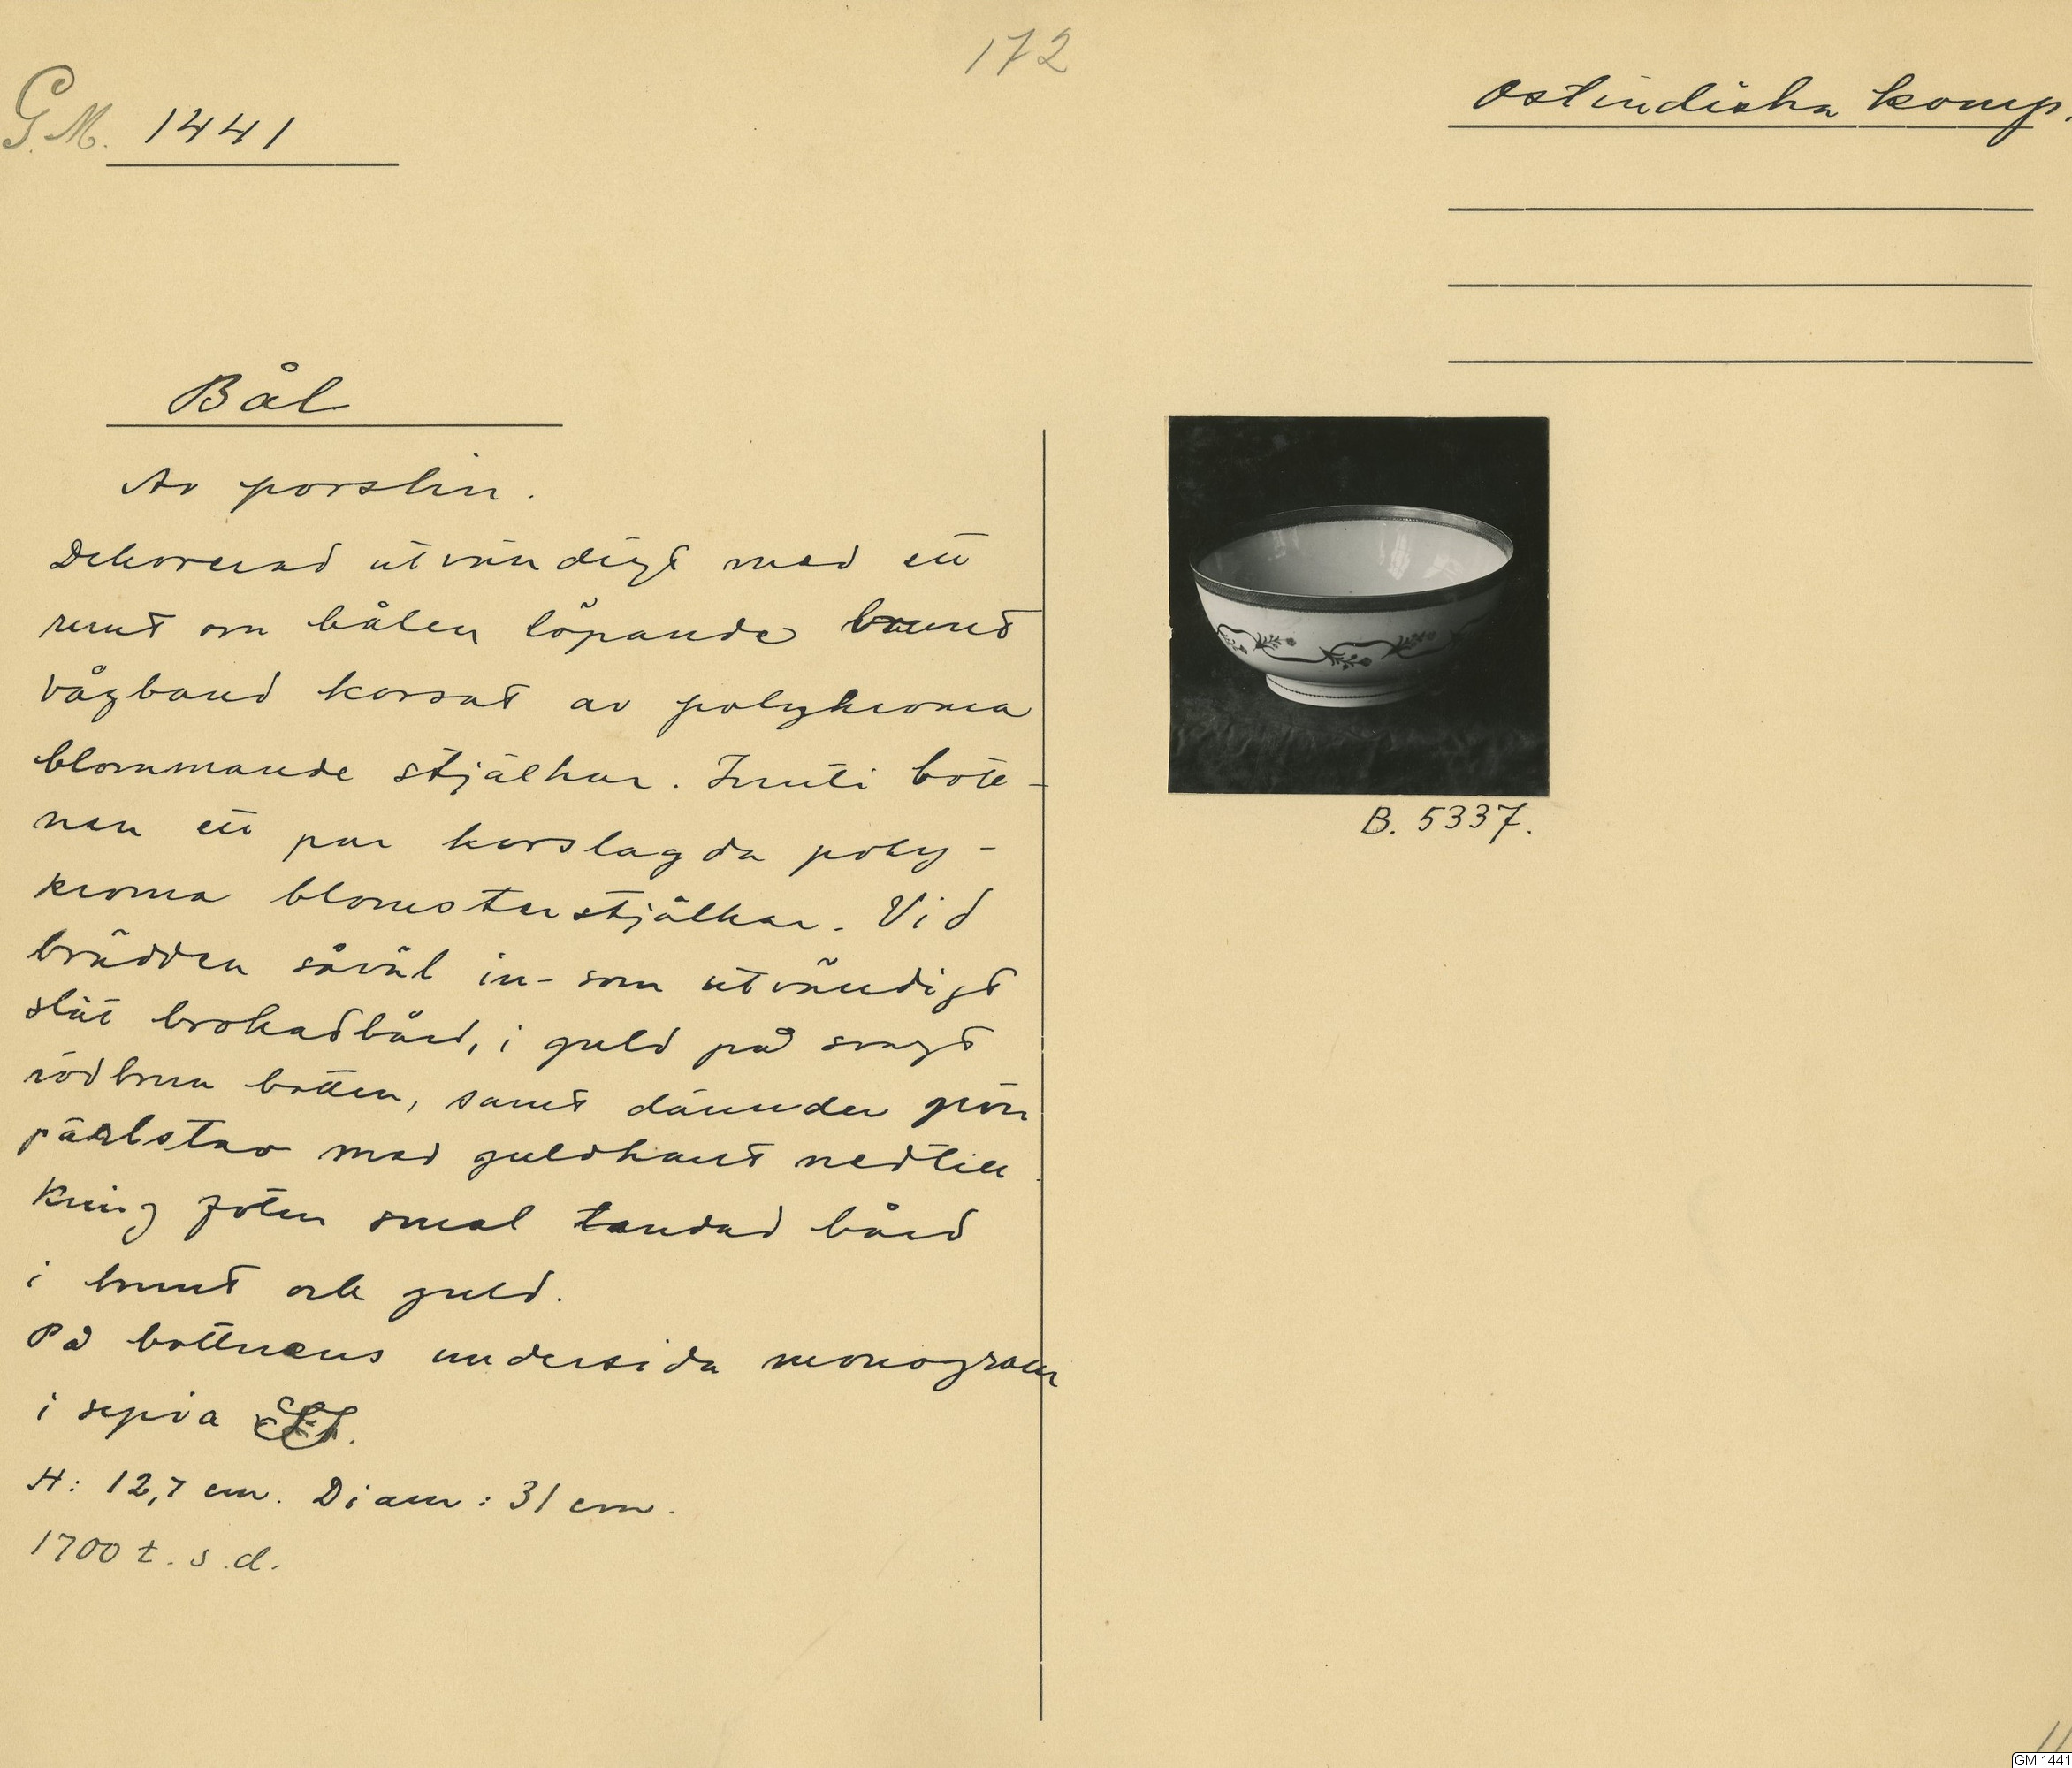 172
G.M. 1441
Ostindiska komp.
Bål
Av porslin.
Dekorerad utvändigt med ett
runt om bålen löpande brunt
vågband korsat av polykroma
blommande stjälkar. Inuti bott-
nen ett par korslagda poly-
kroma blomsterstjälkar. Vid
brädden såväl in- som utvändigt
slät brokadbård, i guld på svagt
rödbrun botten, samt därunder grön
pärlstav med guldkant nedtill
Kring foten smal tandad bård
i brunt och guld.
På bottnens undersida monogram
i sepia
H: 12,7 cm. Diam: 31 cm.
1700 t. s. d.
B. 5337.
GM:1441